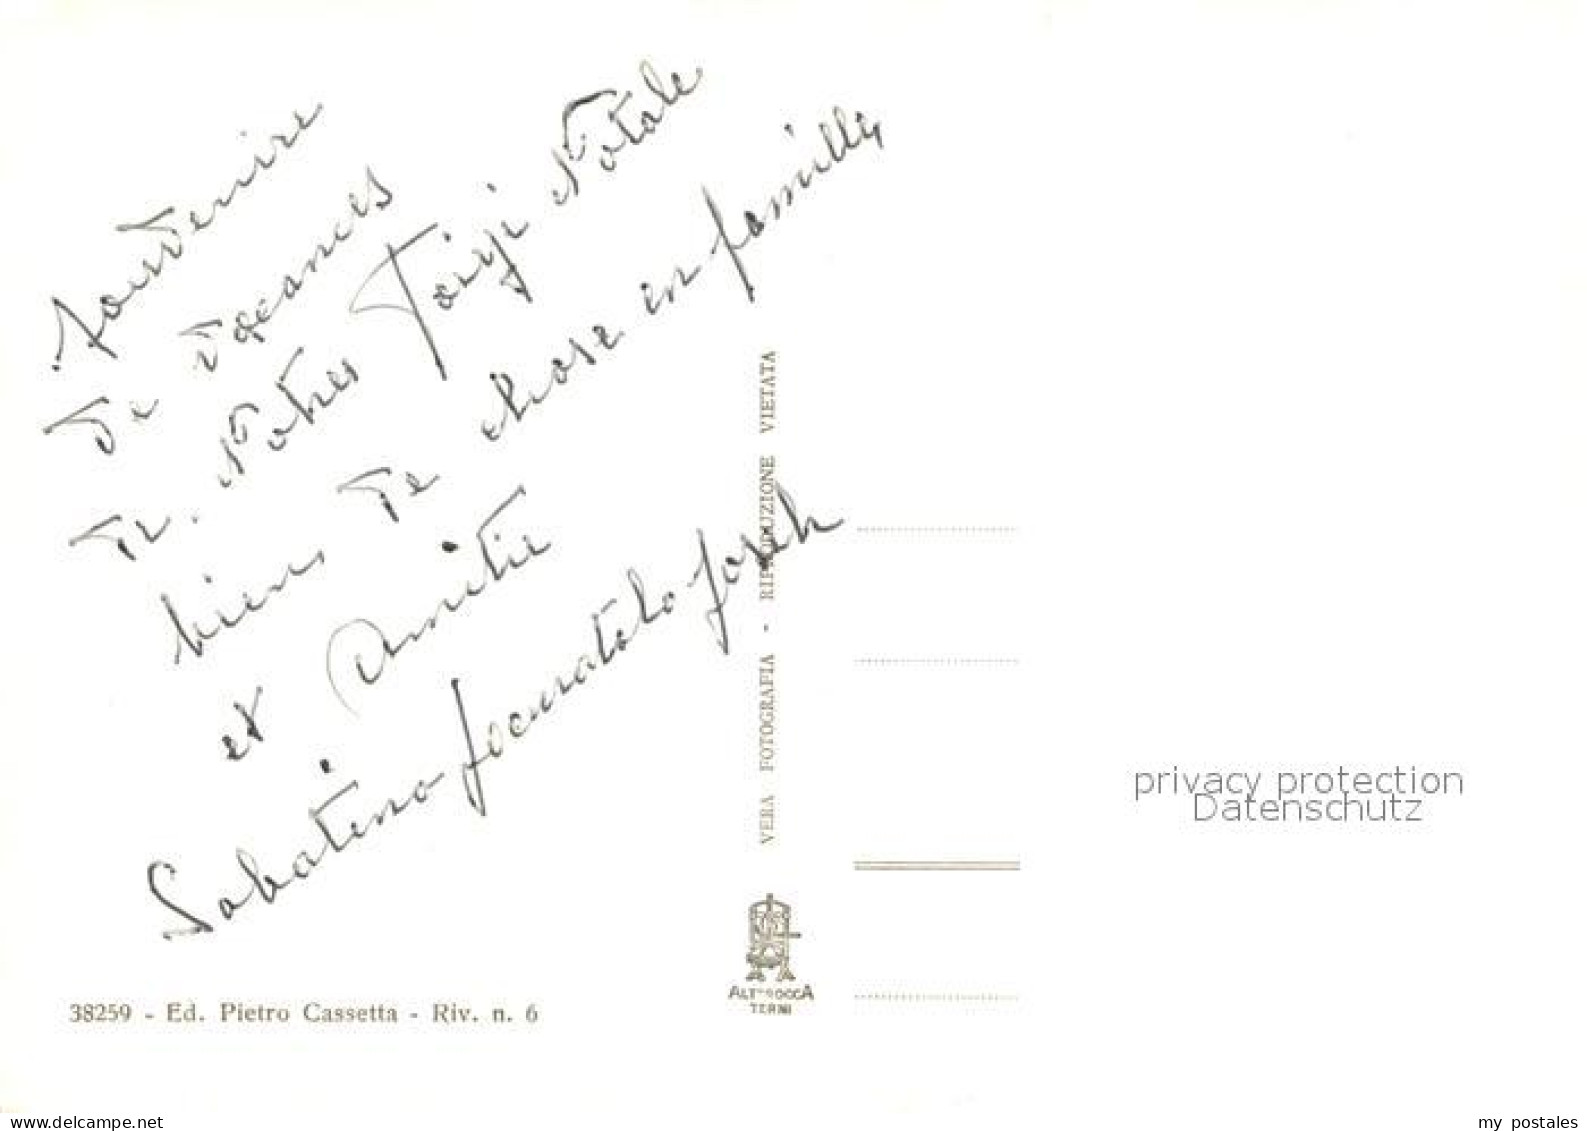 Souvenire
de vacances
de. Notres Natale
biens de chose en famille,
et Amitie
Sabatino
VERA FOTOGRAFIA - RIPRODUZIONE VIETATA
ALTEROCCA
TERNI
38259 - Ed. Pietro Cassetta - Riv. n. 6
privacy protection
Datenschutz
delcampe.net
my postales